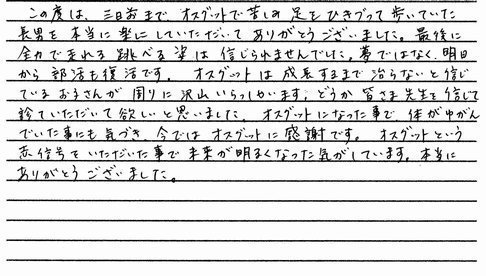 この度は、三日前まで、オスグットで苦しみ足をひきづって歩いていた
長男を本当に楽にしていただいてありがとうございました。最後に
全力で走れる跳べる姿は信じられませんでした。夢ではなく、明日
から部活も復活です。オスグットは成長するまで治らないと信じ
ているお子さんが周りに沢山いらっしゃいます。どうか皆さま先生を信じて
診ていただいて欲しいと思いました。オスグットになった事で、体がゆがん
でいた事にも気づき、今ではオスグットに感謝です。オスグットという
赤信号をいただいた事で未来が明るくなった気がしています。本当に
ありがとうございました。